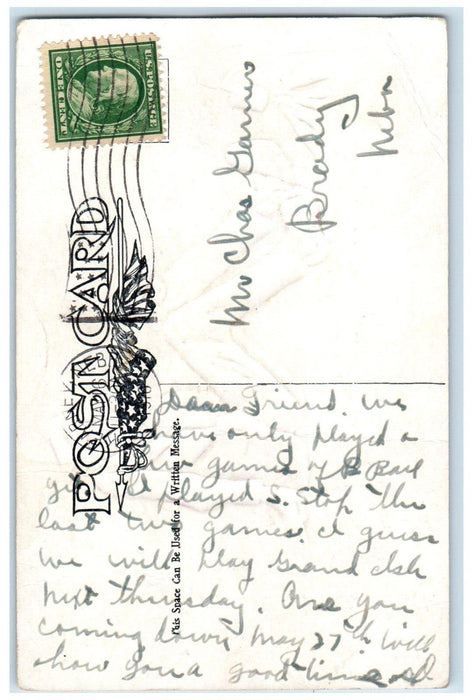 ONE CENT
U.S. POSTAGE
POST CARD
This Space Can Be Used for a Written Message.
Mr Chas
Brady
Nebr
Dear Friend. we
have only played a
few games of B Ball
yet I played S. Stop the
last two games. I guess
we will play Grand Isle
next thursday. Are you
coming down May 27th Will
show you a good time